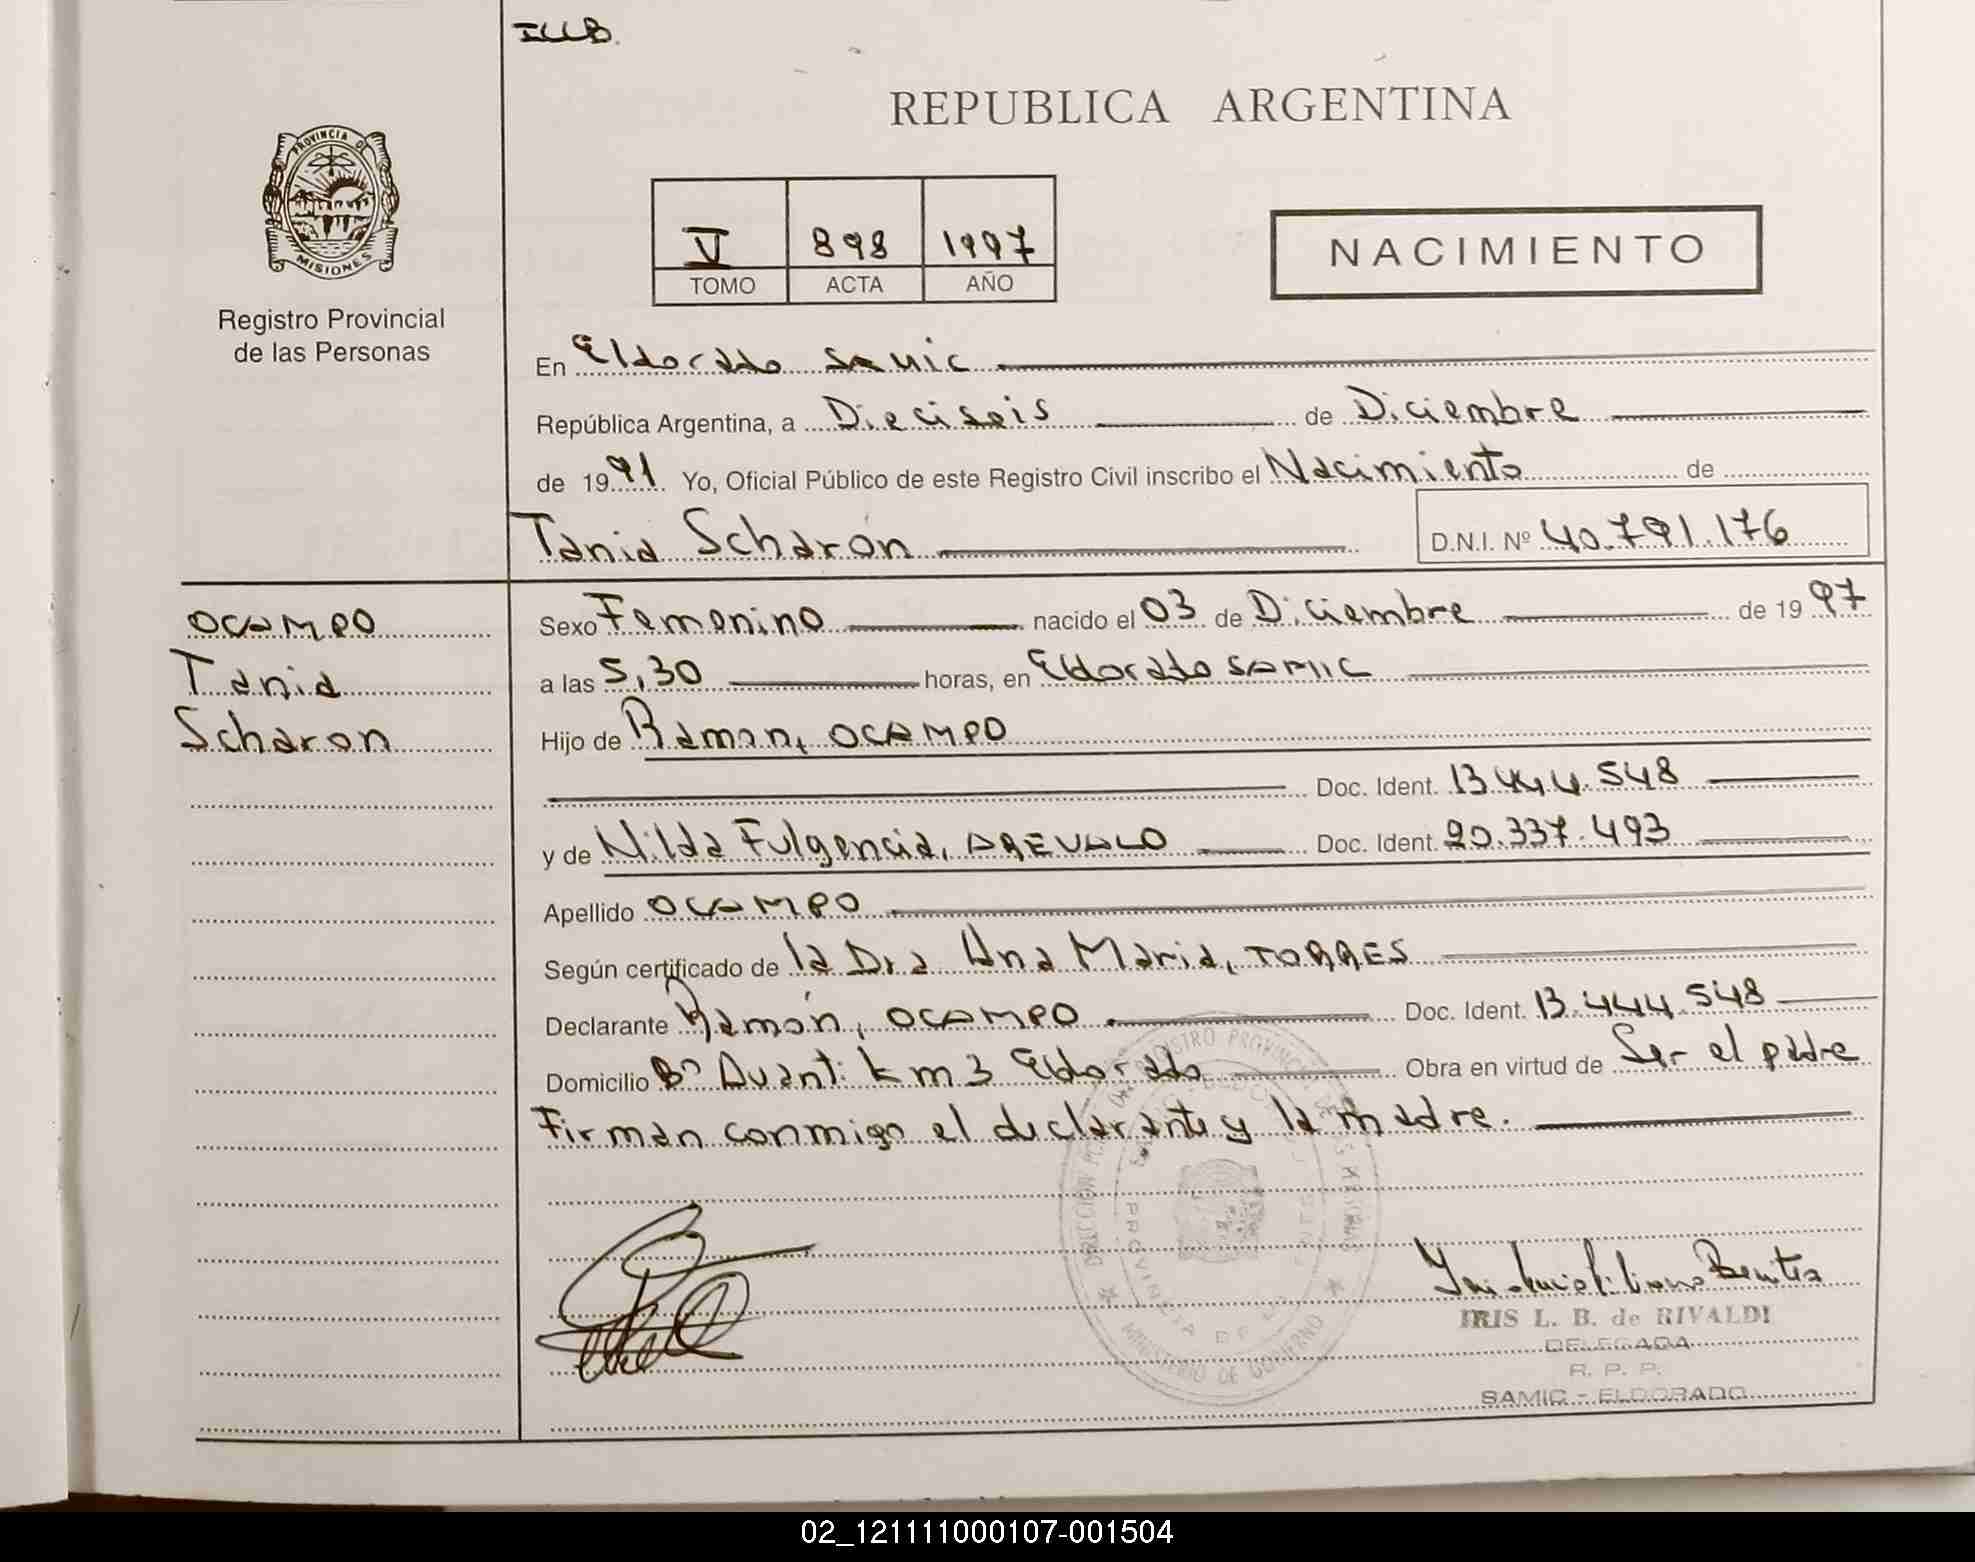 ILLB.
REPUBLICA ARGENTINA
PROVINCIA DE
MISIONES
Registro Provincial
de las Personas
V 898 1997
TOMO ACTA AÑO
NACIMIENTO
En Eldorado Samic
República Argentina, a Dieciseis de Diciembre
de 1991 Yo, Oficial Público de este Registro Civil inscribo el Nacimiento de
Tania Scharón D.N.I. Nº 40.791.176
OCAMPO
Tania
Scharon
Sexo Femenino nacido el 03 de Diciembre de 1997
a las 5,30 horas, en Eldorado SAMIC
Hijo de Ramon, OCAMPO
Doc. Ident. 13.444.548
y de Nilda Fulgencia, AREVALO Doc. Ident. 20.337.493
Apellido OCAMPO
Según certificado de la Dra Ana Maria, TORRES
Declarante Ramón, OCAMPO Doc. Ident. 13.444.548
Domicilio Bº Avanti km 3 Eldorado Obra en virtud de Ser el padre
Firman conmigo el declarante y la madre.
MINISTERIO DE GOBIERNO
IRIS L. B. de RIVALDI
DELEGADA
R. P. P.
SAMIC - ELDORADO
02_121111000107-001504